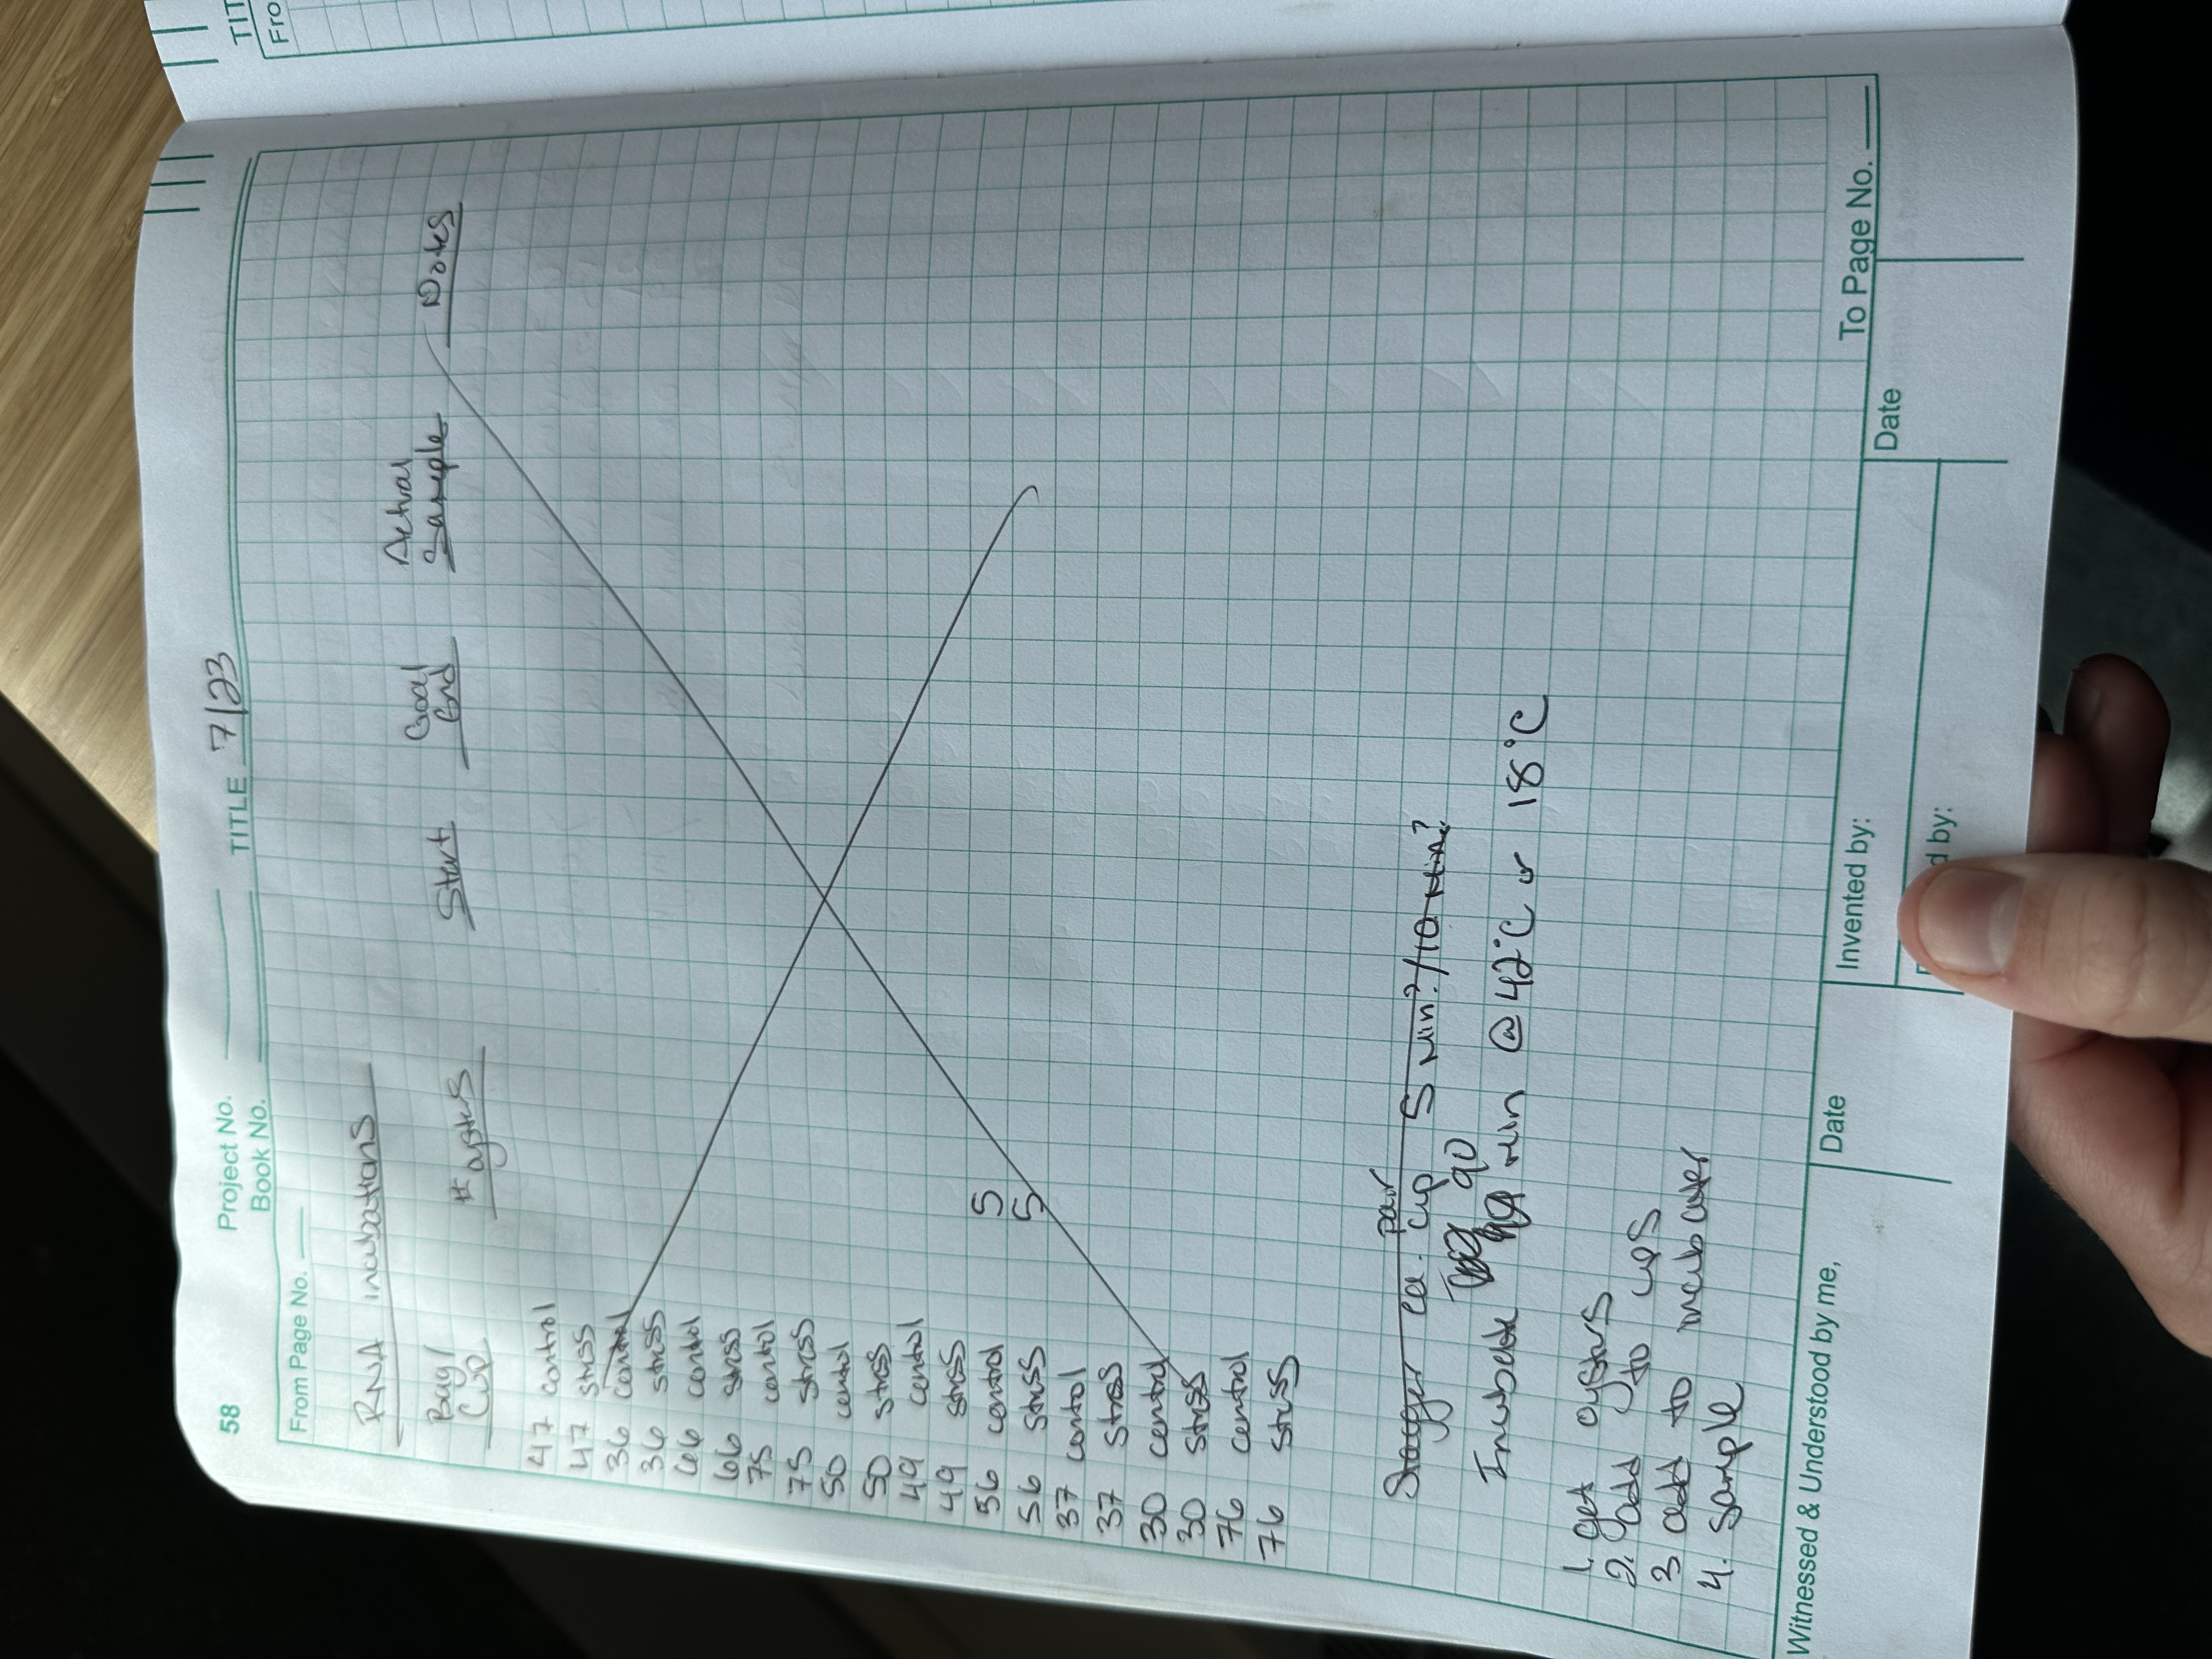 58 Project No. TITLE 7/23
Book No.
From Page No.
RNA incubations
Bag/ Cup # oysters Start Goal End Actual Sample Notes
47 control
47 stress
36 control
36 stress
66 control
66 stress
75 control
75 stress
50 control
50 stress
49 control
49 stress
56 control 5
56 stress 5
37 control
37 stress
30 control
30 stress
76 control
76 stress
pair
Stagger ea. cup 5 min?/10 min?
90
Incubate min @ 42°C or 18°C
1. get oysters
2. add to cups
3 add to incubater
4. sample
Witnessed & Understood by me,
Date
Invented by:
Date
To Page No.
d by:
TIT
Fro